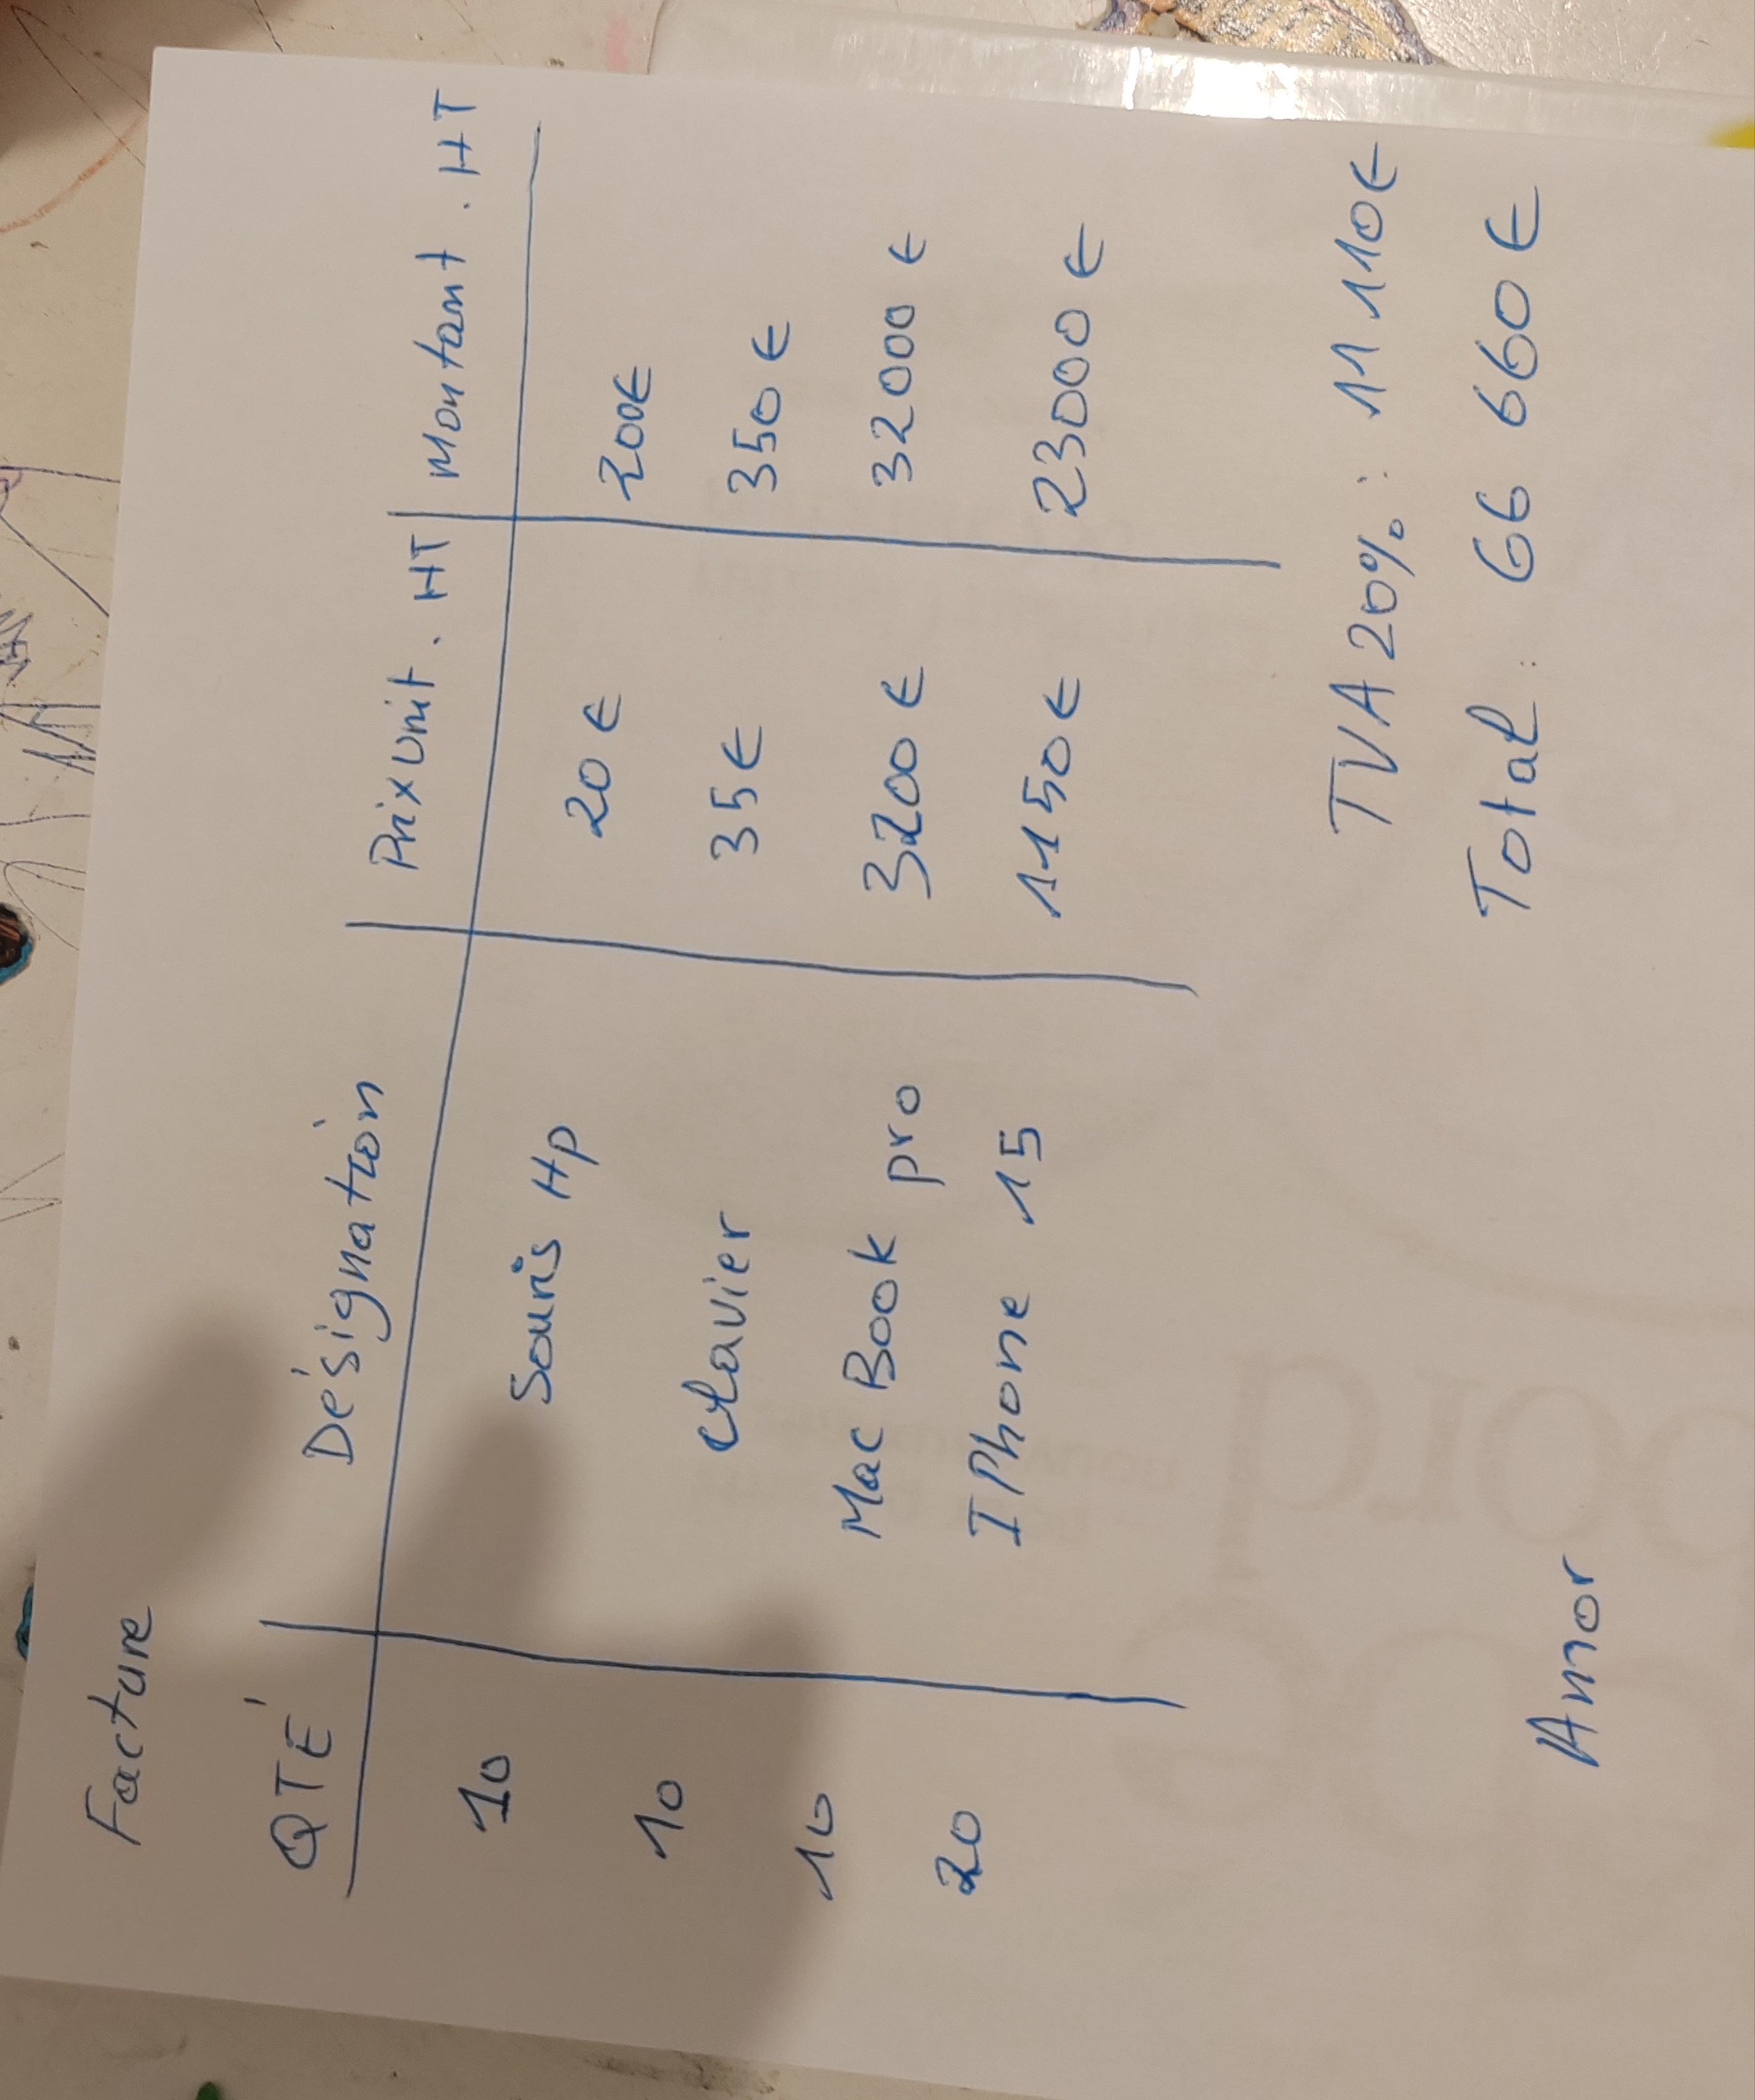 Facture
QTÉ Désignation Prix Unit. HT Montant. HT
10 Souris Hp 20 € 200€
10 clavier 35€ 350 €
10 Mac Book pro 3200 € 32000 €
20 IPhone 15 1150€ 23000 €
TVA 20% : 11 110€
Total : 66 660 €
Amor